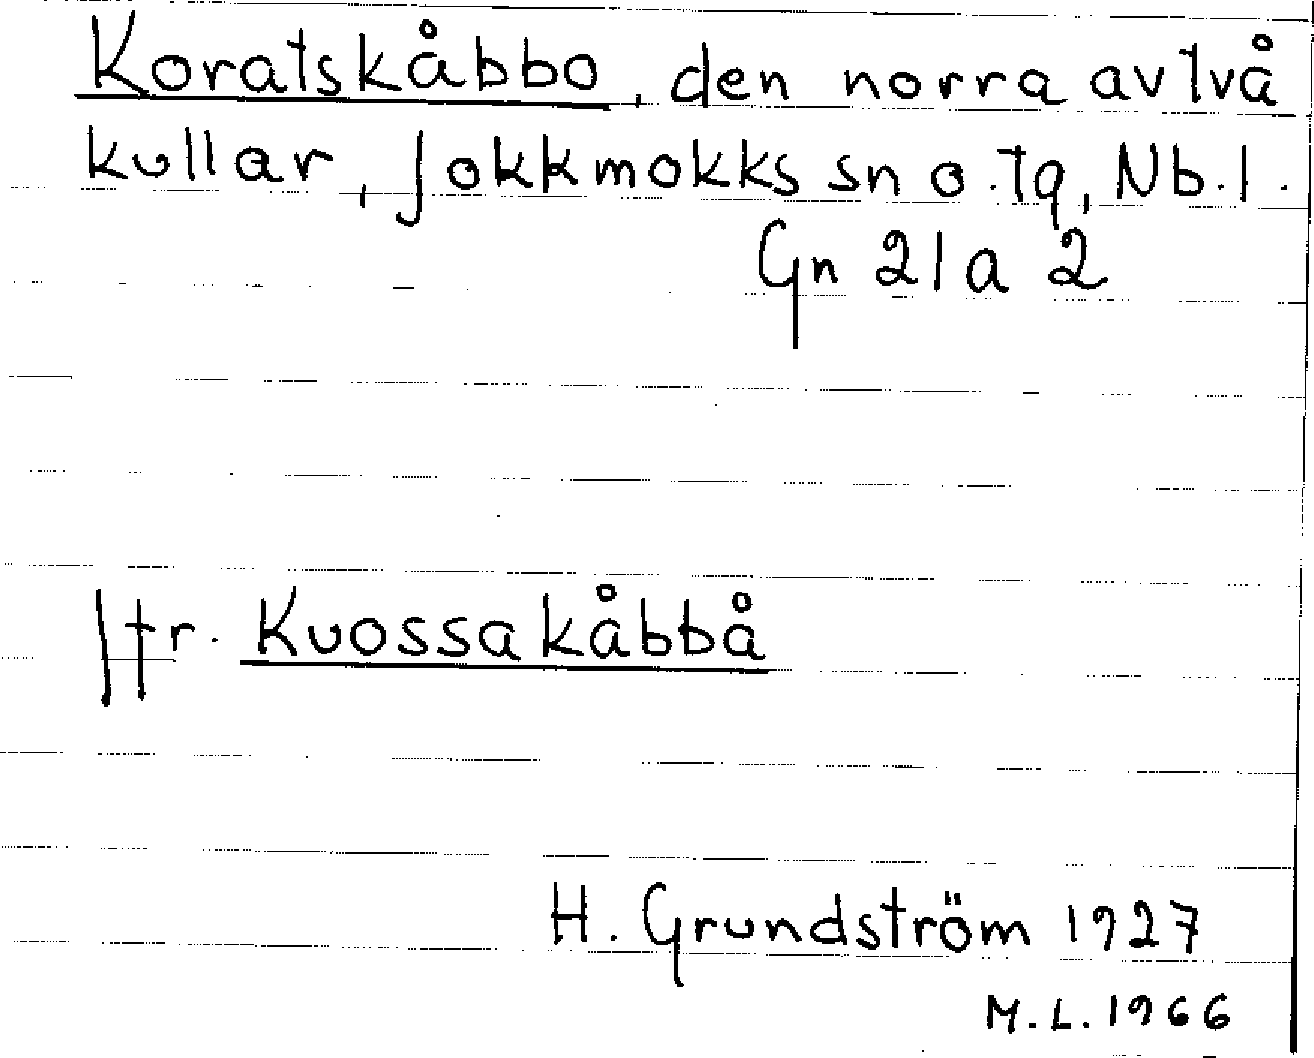 Koratskåbbo, den norra av två
kullar, Jokkmokks sn o. tg, Nb. l.
Gn 21a 2
Jfr. Kuossakåbbå
H. Grundström 1927
M.L. 1966